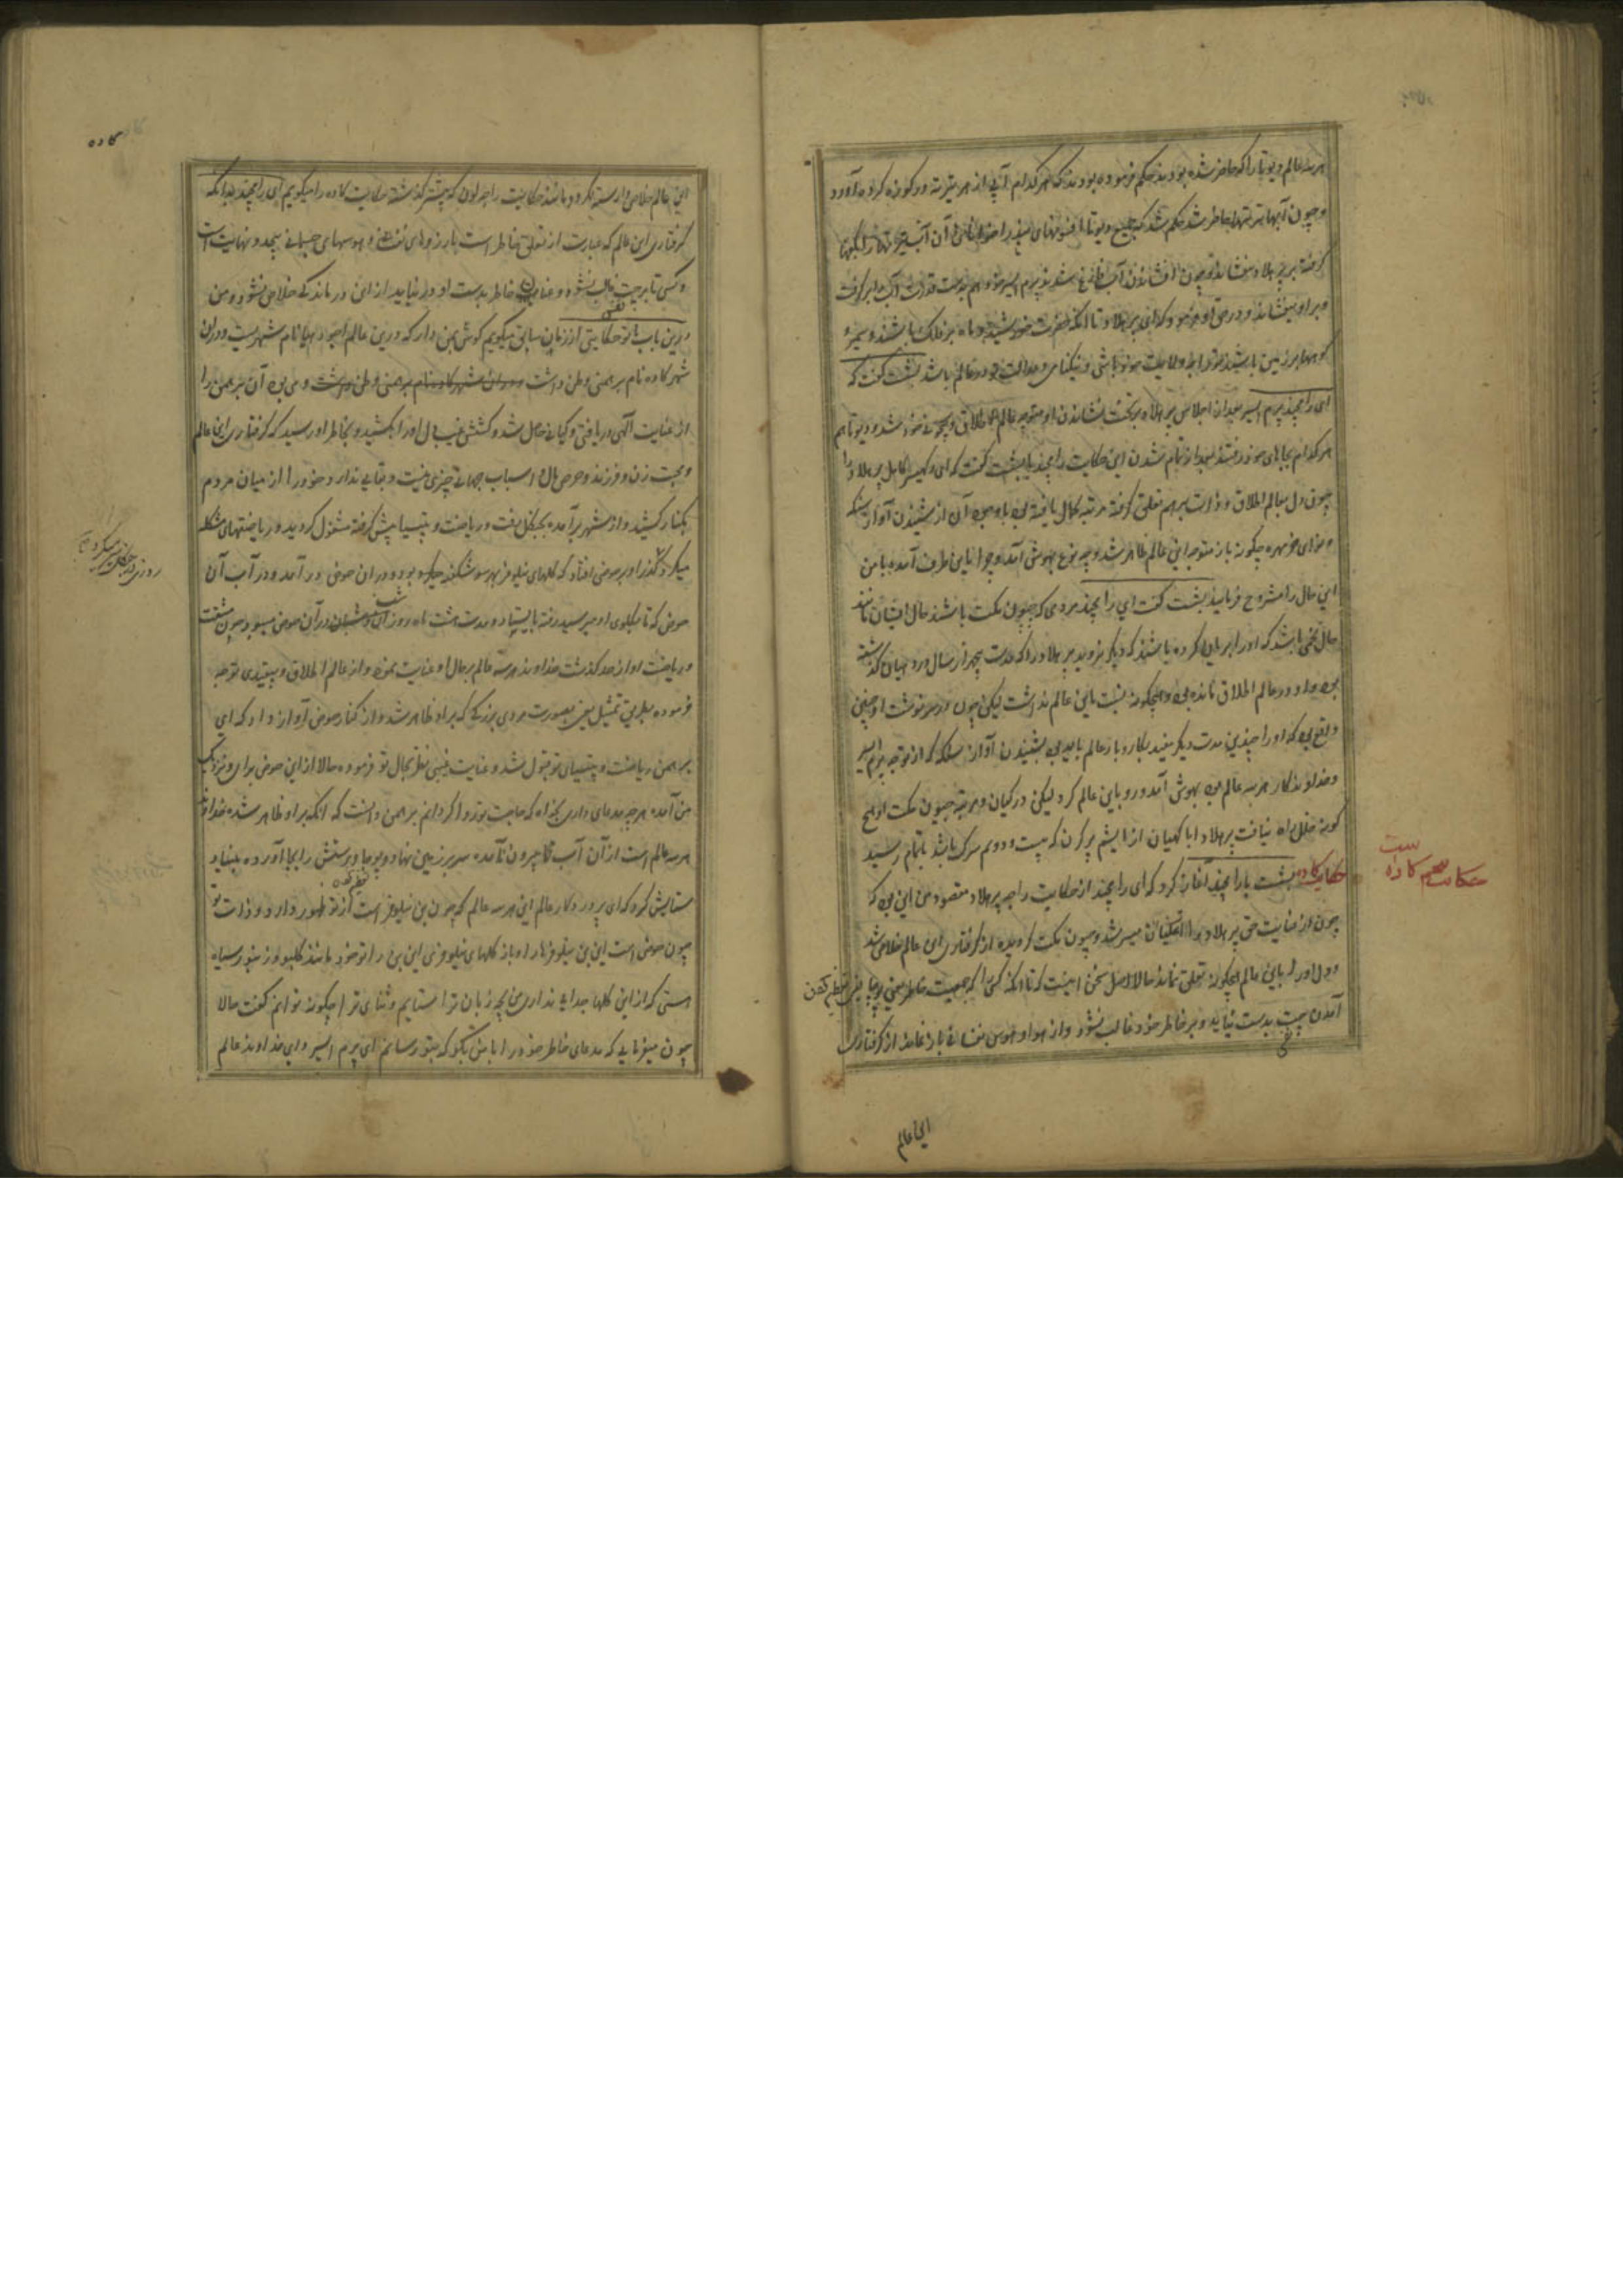 هر سه عالم دیوتا را که حاضر شده بودند حکم فرموده بودند که هر کدام آبی از هر تیرتهه در کوزه کرده آورد
و چون آبها بتمامها حاضر شد حکم شد که جمیع دیوتا افسونهای بید را خوانان آن آب تیرتهها را بکفها
گرفته بر پرهلاد بفشاندند چون از فشاندن آب فارغ شدند پرم ایسر خود هم بدست قدرت آب را برگرفت
و بر او بیفشاند و در حق او فرمود که ای پرهلاد تا آنکه حضرت خورشید و ماه بر فلک باشند و سمیر
کوهها بر زمین باشند تو راجه ولایت خود باشی و نیکنامی و عدالت تو در عالم باشد بشست گفت که
ای رامچند پرم ایسر بعد از اجلاس پرهلاد بر تخت نشاندن او متوجه عالم اطلاق و بیچونی خود شد و دیوتا هم
هر کدام بجاهای خود رفتند بعد از تمام شدن این حکایت رامچند با بشست گفت که ای رکهیسر کامل پرهلاد را
چون دل بعالم اطلاق و ذات برهم تعلق گرفته مرتبه کمال یافته بود باوجود آن از شنیدن آواز سنکهه
و نوای خرمهره چگونه باز متوجه این عالم ظاهر شد و چه نوع بهوش آمد و چرا باین طرف آمده با من
این حال را مشروح فرمایید بشست گفت ای رامچند مردمی که جیون مکت باشند حال ایشان مانند
حال تخمی باشد که او را بریان کرده باشند که دیگر نروید پرهلاد را که مدت پنجهزار سال درو بهیان گذشته
بود و او در عالم اطلاق مانده بود و هیچگونه نسبت باین عالم نداشت لیکن چون در سرنوشت او چنین
واقع بود که او را چندین مدت دیگر مقید بکار و بار عالم باید بود بشنیدن آواز سنکهه که از توجه پرم ایسر
و خداوندگار هر سه عالم بود بهوش آمد و رو باین عالم کرد لیکن در گیان و مرتبه جیون مکت او هیچ
گونه خلل راه نیافت پرهلاد ابا کهیان از اپشم پرکرن که بیست و دوم سرک باشد باتمام رسید
حکایت کاده بشست با رامچند آغاز کرد که ای رامچند از حکایت راجه پرهلاد مقصود من این بود که
چون از عنایت حق پرهلاد را گیان میسر شد و جیون مکت گردیده از گرفتاری این عالم خلاص شد
و دل او را باین عالم هیچگونه تعلق نماند حالا اصل سخن اینست که تا آنکه کسی را که جمعیت خاطر یعنی
آمدن چت بدست نیاید و بر خاطر خود غالب نشود و از هوا و هوس نفسانی باز نماند از گرفتاری
این عالم
حکایت سیم کاده است
کاده
این عالم خلاص و وارسته نگردد مانند حکایت راجه لون که پیشتر گذشته حکایت کاده را میگویم ای رامچند بدانکه
گرفتاری این عالم که عبارت از تعلق خاطر است بآرزوهای نفسانی و هوسهای جسمانی بیحد و نهایت است
و کسی تا بر چت غالب نشود و عنان خاطر بدست او در نیاید از این درماندگی خلاص نشود و من
درین باب بتو حکایتی از زمان سابق میگویم گوش بمن دار که درین عالم اجودهیا نام شهریست و در آن
شهر کاده نام برهمنی وطن داشت و می بود آن برهمن را
از عنایت الهی دریافتی و گیانی حاصل شد و کشش غیب دل او را بکشید و بخاطر او رسید که گرفتاری این عالم
و محبت زن و فرزند و حرص مال و اسباب جهان چیزی نیست و بقایی ندارد خود را از میان مردم
بکنار کشید و از شهر برآمده بجنگل رفت و ریاضت و تپسیا پیش گرفته مشغول گردید و ریاضتهای مشکله
میکرد گذر او بر حوضی افتاد که گلهای نیلوفر بهر سو شکفته بود و در آن حوض درآمد و در آب آن
حوض که تا بگلوی او میرسید رفته بایستاد و مدت هشت ماه روز و شب در آن حوض میبود چون مشقت
و ریاضت او از حد گذشت خداوند هر سه عالم بر حال او عنایت نموده و از عالم اطلاق و بیقیدی توجه
فرموده بطریق تمثیل یعنی بصورت مردی بزرگی که بر او ظاهر شد و از کنار حوض آواز داد که ای
برهمن ریاضت و تپسیای تو قبول شد و عنایت غیبی نظر بحال تو فرموده حالا از این حوض برای و نزدیک
من آمده هر چه مدعای داری بخواه که حاجت تو روا گردانم برهمن دانست که آنکه بر او ظاهر شده خداوند
هر سه عالم است از آن آب بیرون آمده سر بر زمین نهاد و پوجا و پرستش را بجا آورده بنیاد
ستایش کرد که ای پروردگار عالم این هر سه عالم که چون بن نیلوفر است از تو ظهور دارد و ذات تو
چون حوض است این بن نیلوفرها را و باز گلهای نیلوفری این بن را تو خود مانند زنبور سیاه
استی که از این گلها جدایی نداری من بچه زبان ترا ستایم و ثنای ترا چگونه توانم گفت حالا
چون میفرمایی که مدعای خاطر خود را با من بگو که بتو رسانم ای پرم ایسر و ای خداوند عالم
روزی در جنگل سیر میکرد